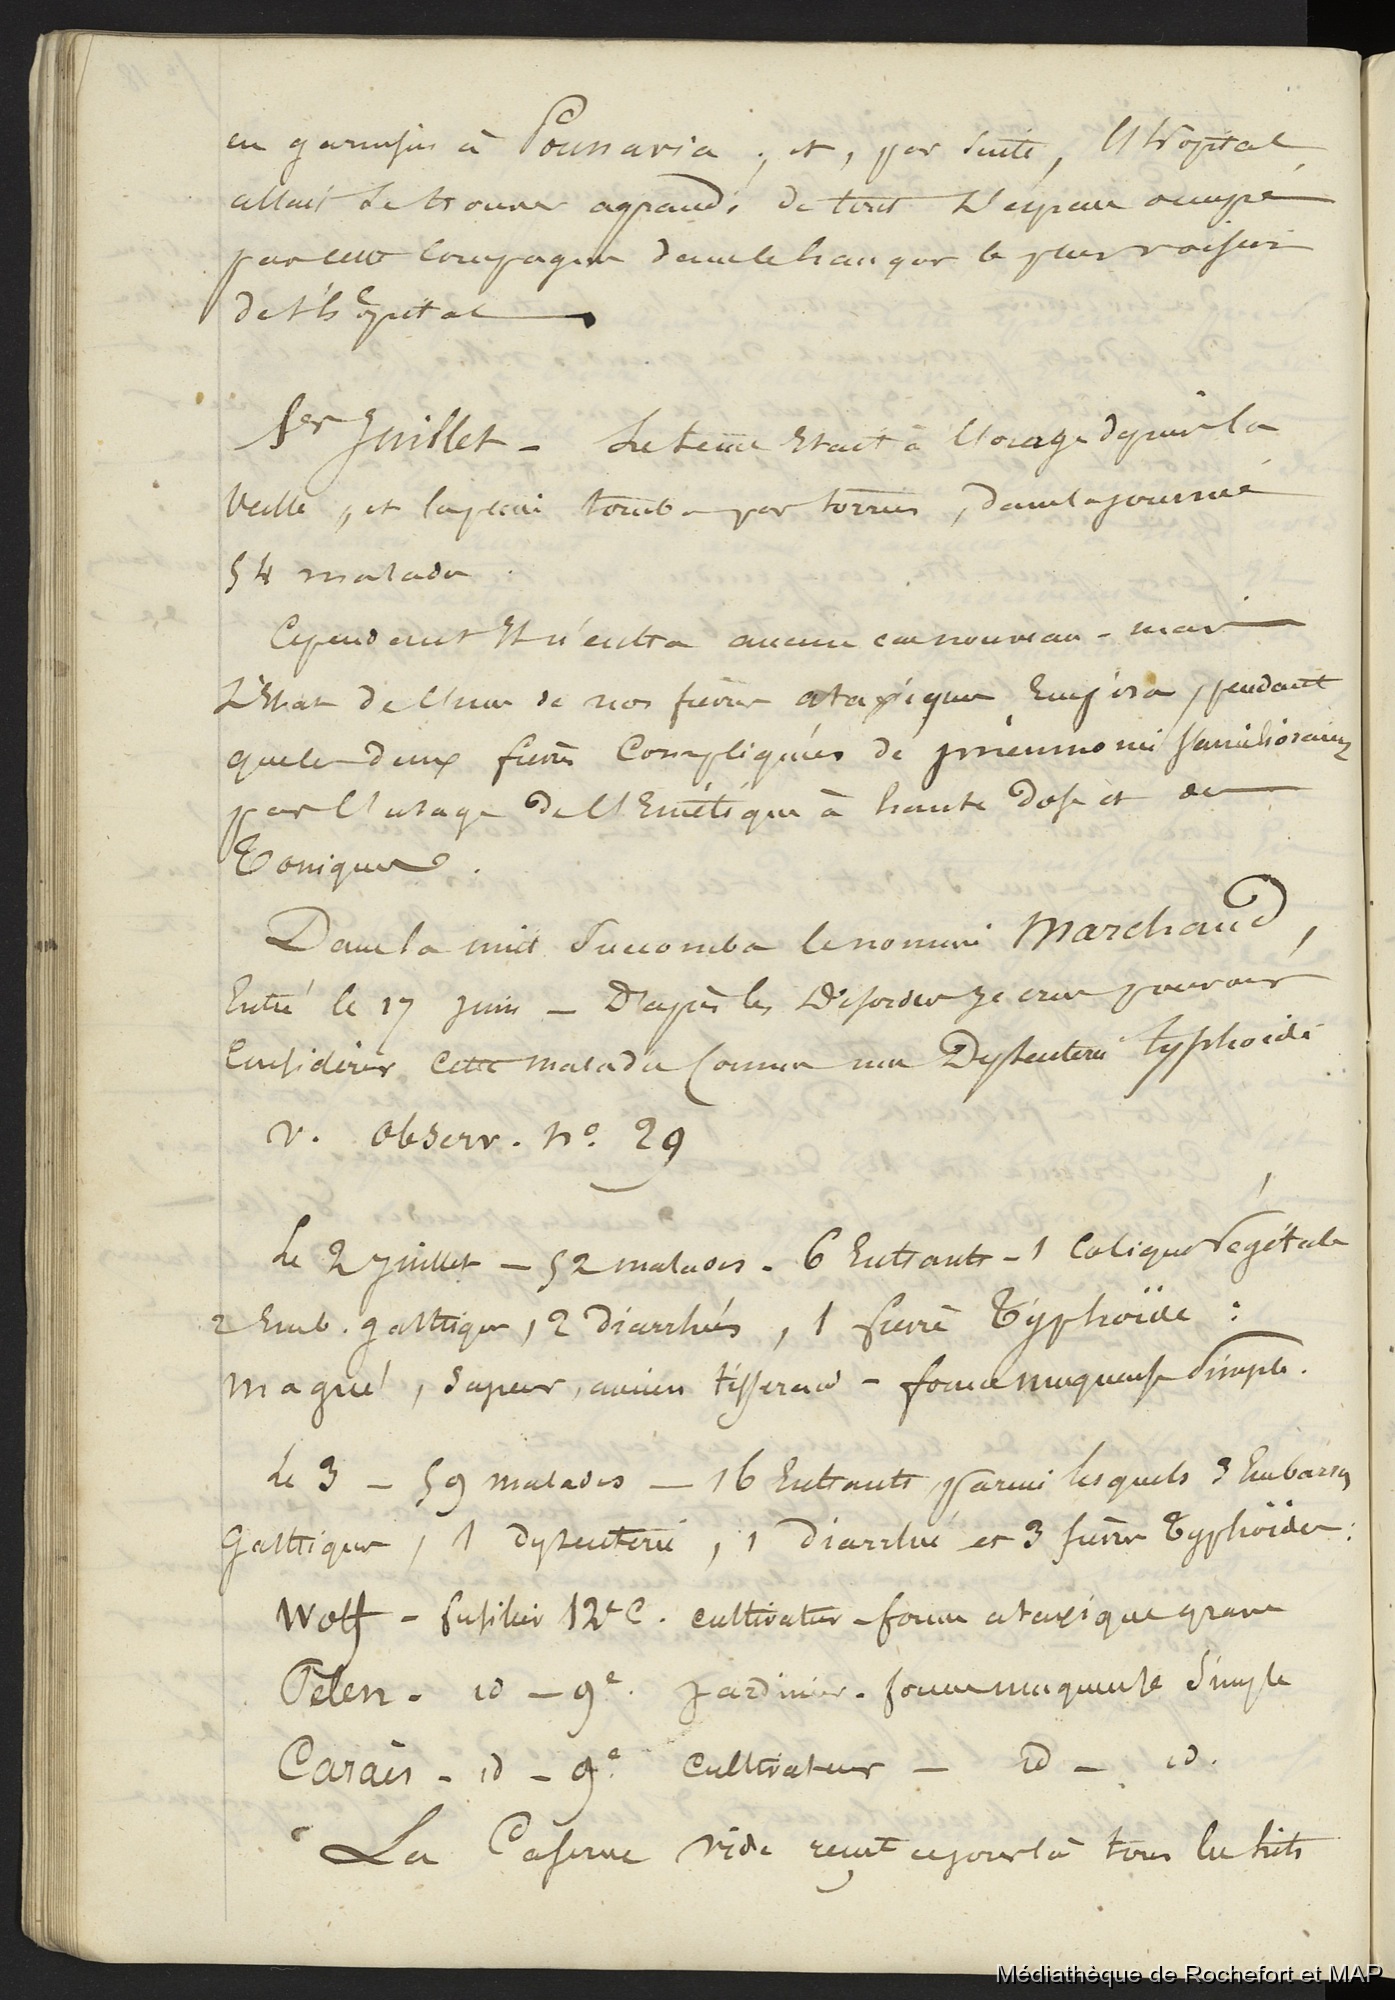 en garnison à Pounavia ; et, par suite, l'hopital
allait se trouver agrandi de tout l'espace occupé
par cette compagnie dans le hangar le plus voisin
de l'hopital
1er Juillet - Le tems était à l'orage depuis la
veille, et la pluie tomba par torrens, dans la journée
54 malades.
Cependant Il n'entra aucun cas nouveau - mais
L'Etat de l'une de nos fièvres ataxiques Empira, pendant
que les deux fièvres Compliquées de pneumonie s'amélioraient
par l'usage de l'Emétique à haute dose et des
Toniques.
Dans la nuit Succomba le nommé Marchand,
Entré le 17 juin - D'après les Désordres je crus pouvoir
Considérer cette maladie Comme une Dyssenterie typhoïde
v. observ. no. 29
Le 2 juillet - 52 malades - 6 Entrants - 1 Colique Végétale
2 Emb. gastriques, 2 Diarrhées, 1 fièvre Typhoïde :
Magué, Sapeur, ancien tisserand - forme muqueuse Simple.
Le 3 - 59 malades - 16 Entrants, parmi lesquels 3 Embarras
Gastriques, 1 dyssenterie, 1 Diarrhée et 3 fièvres Typhoïdes :
Wolf - fusilier 12e C. cultivateur - forme ataxique grave
Pelen - id - 9e. jardinier - forme muqueuse Simple
Carais - id - 9e. cultivateur - id - id.
La Caserne vide reçut ce jour là tous les lits
Médiathèque de Rochefort et MAP